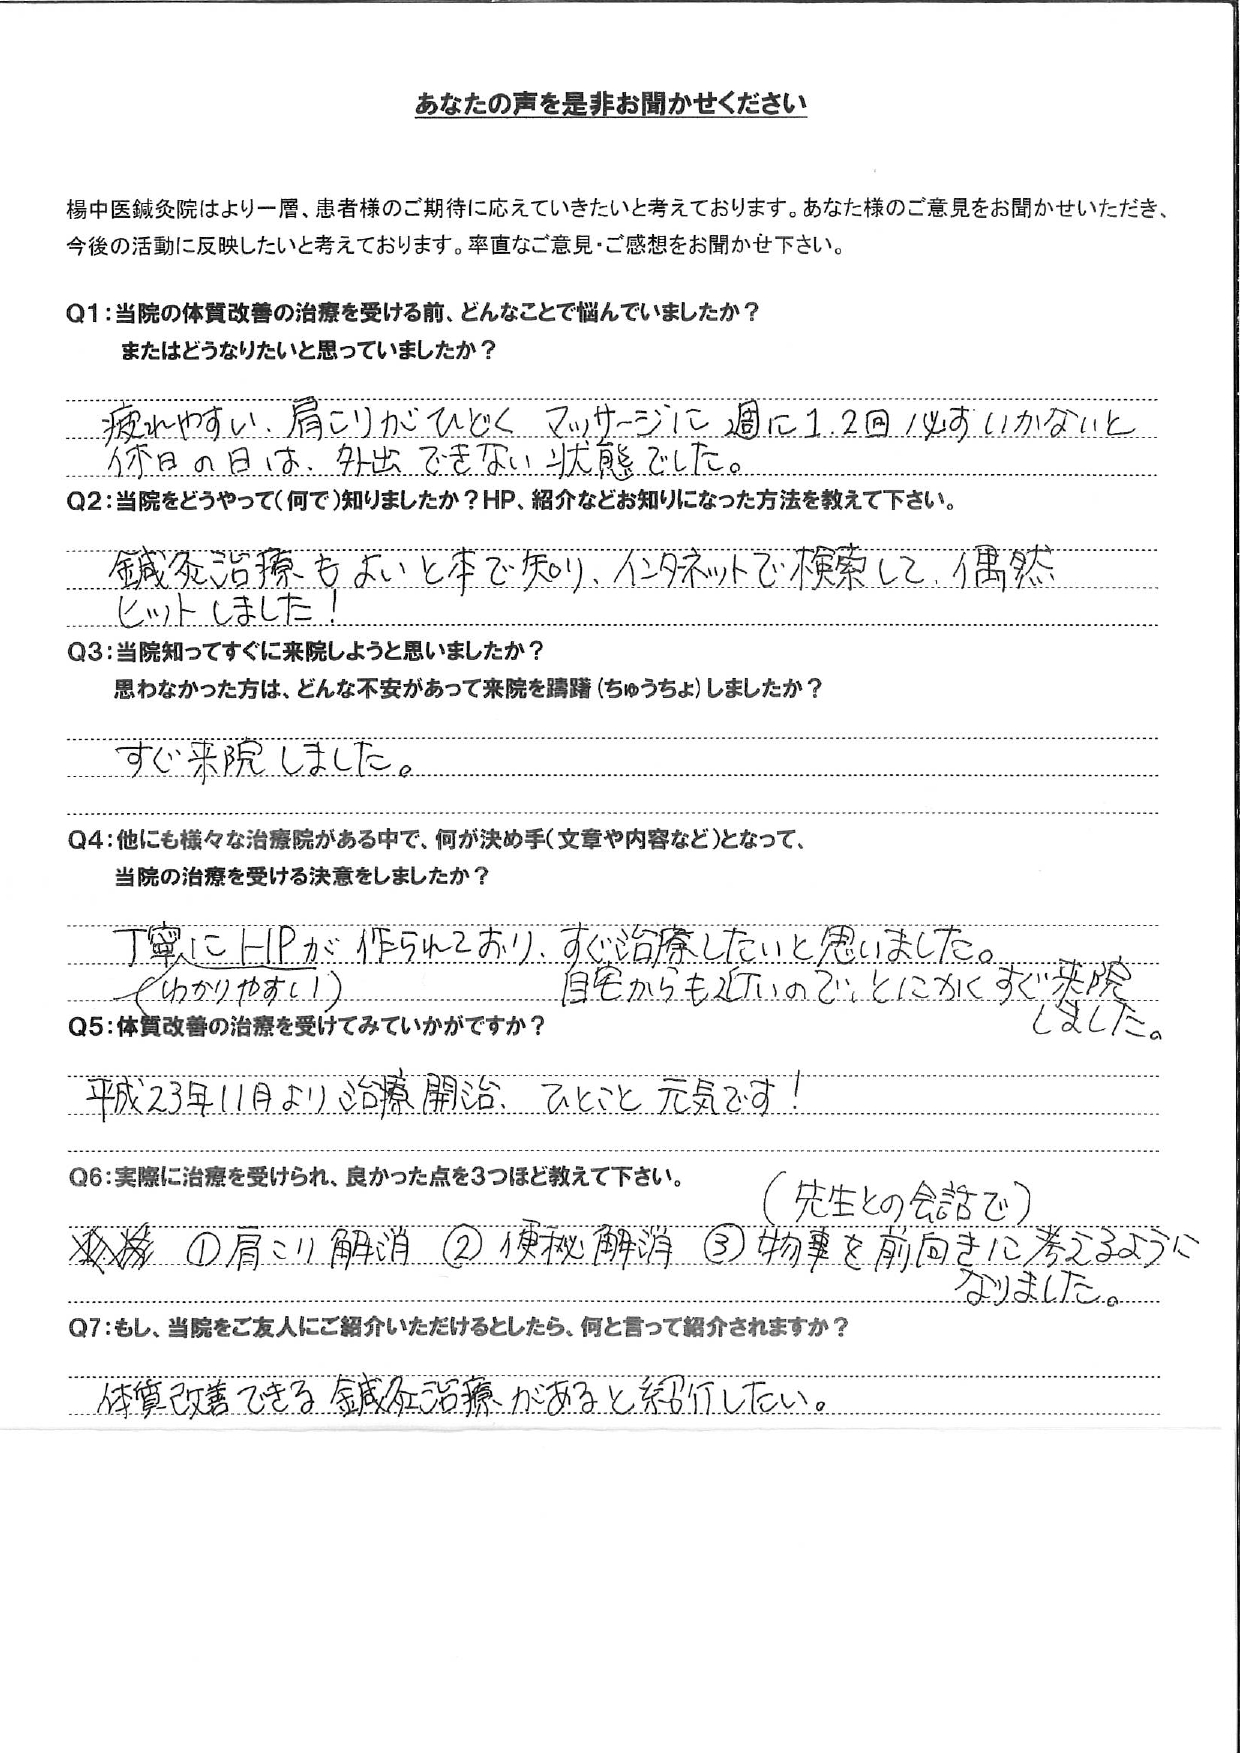 あなたの声を是非お聞かせください
楊中医鍼灸院はより一層、患者様のご期待に応えていきたいと考えております。あなた様のご意見をお聞かせいただき、
今後の活動に反映したいと考えております。率直なご意見・ご感想をお聞かせ下さい。
Q1:当院の体質改善の治療を受ける前、どんなことで悩んでいましたか？
またはどうなりたいと思っていましたか？
疲れやすい、肩こりがひどく マッサージに 週に1.2回 必ずいかないと
休日の日は、外出できない状態でした。
Q2:当院をどうやって(何で)知りましたか？HP、紹介などお知りになった方法を教えて下さい。
鍼灸治療もよいと本で知り、インターネットで検索して、偶然
ヒットしました！
Q3:当院知ってすぐに来院しようと思いましたか？
思わなかった方は、どんな不安があって来院を躊躇(ちゅうちょ)しましたか？
すぐ来院しました。
Q4:他にも様々な治療院がある中で、何が決め手(文章や内容など)となって、
当院の治療を受ける決意をしましたか？
丁寧にHPが作られており、すぐ治療したいと思いました。
(わかりやすい) 自宅からも近いので、とにかくすぐ来院
しました。
Q5:体質改善の治療を受けてみていかがですか？
平成23年11月より治療開治、ひとこと元気です！
Q6:実際に治療を受けられ、良かった点を3つほど教えて下さい。
(先生との会話で)
①肩こり解消 ②便秘解消 ③物事を前向きに考えるように
なりました。
Q7:もし、当院をご友人にご紹介いただけるとしたら、何と言って紹介されますか？
体質改善できる鍼灸治療があると紹介したい。